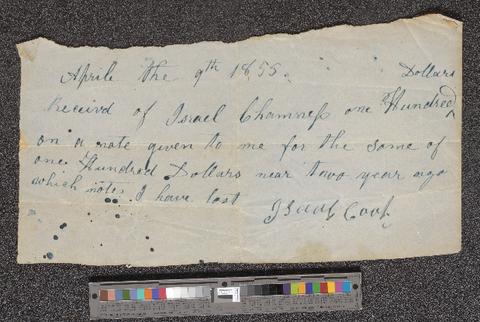 Aprile the 9th 1855.
Dollars
Receivd of Israel Chamness one Hundred ^
on a note given to me for the some of
one Hundred Dollars near towo year ago
which note I have lost
Isaac Cook